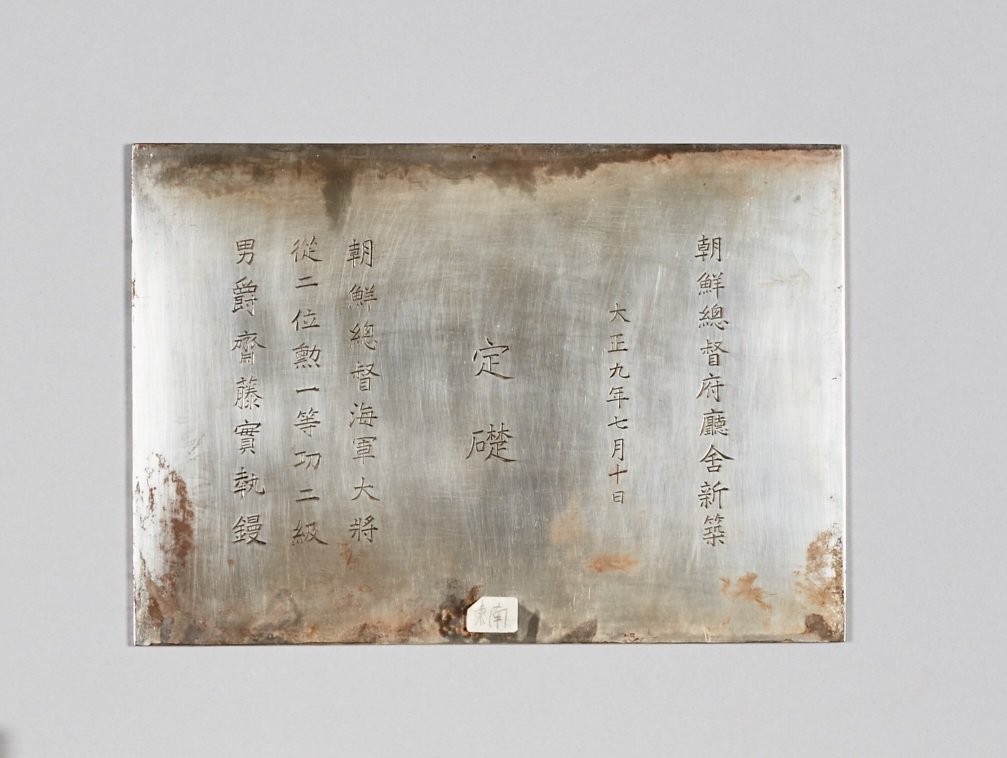 朝鮮總督府廳舍新築
大正九年七月十日
定礎
朝鮮總督海軍大將
從二位勲一等功二級
男爵齋藤實執鏝
東南